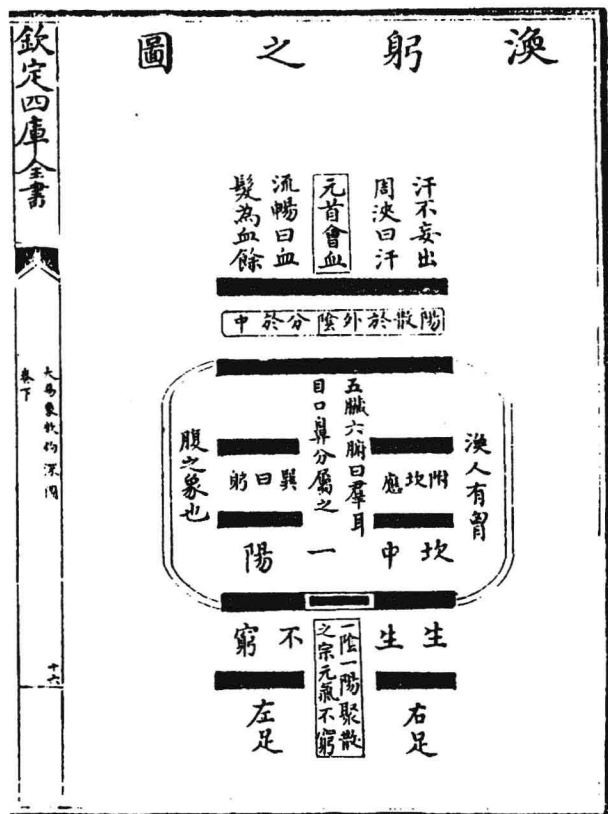 渙躬之圖
汗不妄出
周浹曰汗
元首會血
流暢曰血
髮為血餘
陽散於外陰分於中
渙人有胷
五臟六腑曰羣耳
目口鼻分屬之
腹之象也
附坎應
巽曰躬
坎中一陽
生生不窮
一陰一陽聚散
之宗元氣不窮
右足
左足
欽定四庫全書
大易象數鉤深圖
卷下
十六